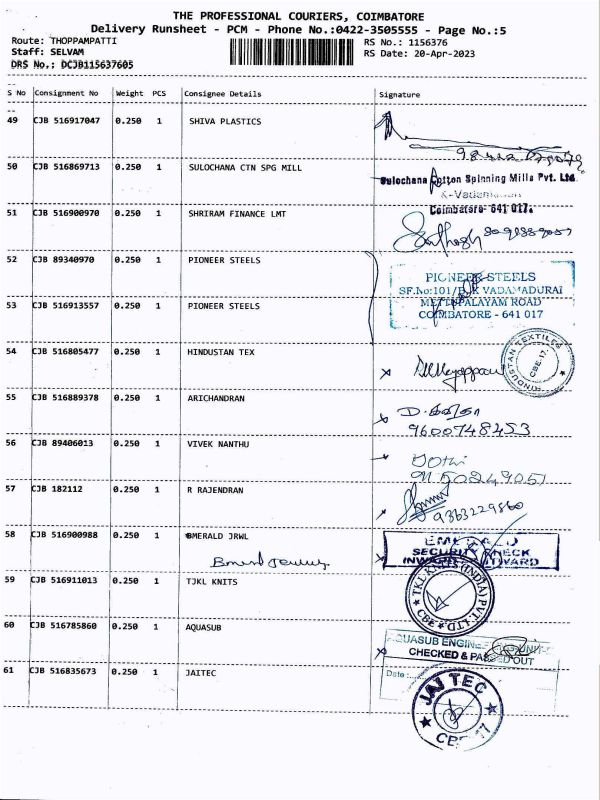 THE PROFESSIONAL COURIERS, COIMBATORE
Delivery Runsheet - PCM - Phone No.:0422-3505555 - Page No.:5
Route: THOPPAMPATTI RS No.: 1156376
Staff: SELVAM RS Date: 20-Apr-2023
DRS No.: DCJB115637605
S No Consignment No Weight PCS Consignee Details Signature
49 CJB 516917047 0.250 1 SHIVA PLASTICS
50 CJB 516869713 0.250 1 SULOCHANA CTN SPG MILL
Sulochana Cotton Spinning Mills Pvt. Ltd.
Coimbatore- 641 017.
51 CJB 516900970 0.250 1 SHRIRAM FINANCE LMT
Santhosh
52 CJB 89340970 0.250 1 PIONEER STEELS
PIONEER STEELS
SF.No:101/ K VADAMADURAI
METTUPALAYAM ROAD
COIMBATORE - 641 017
53 CJB 516913557 0.250 1 PIONEER STEELS
54 CJB 516805477 0.250 1 HINDUSTAN TEX
HINDUSTAN TEXTILES
CBE-17.
55 CJB 516889378 0.250 1 ARICHANDRAN
9600748453
56 CJB 89406013 0.250 1 VIVEK NANTHU
57 CJB 182112 0.250 1 R RAJENDRAN
9363229860
58 CJB 516900988 0.250 1 EMERALD JRWL
EMERALD
SECURITY CHECK
INWARD / OUTWARD
59 CJB 516911013 0.250 1 TJKL KNITS
TKL KNITS (INDIA) PVT. LTD.
CBE
60 CJB 516785860 0.250 1 AQUASUB
AQUASUB ENGINEERING UNIT
CHECKED & PASSED OUT
Date :
61 CJB 516835673 0.250 1 JAITEC
JAI TEC
CBE-17